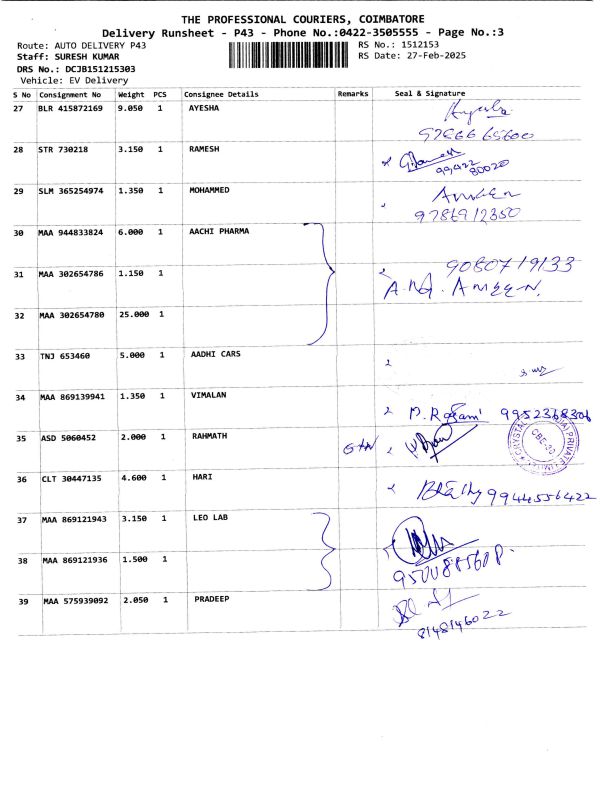 THE PROFESSIONAL COURIERS, COIMBATORE
Delivery Runsheet - P43 - Phone No.:0422-3505555 - Page No.:3
Route: AUTO DELIVERY P43
RS No.: 1512153
Staff: SURESH KUMAR
RS Date: 27-Feb-2025
DRS No.: DCJB151215303
Vehicle: EV Delivery
S No Consignment No Weight PCS Consignee Details Remarks Seal & Signature
27 BLR 415872169 9.050 1 AYESHA
28 STR 730218 3.150 1 RAMESH
99422
80020
29 SLM 365254974 1.350 1 MOHAMMED AMEEN
9786912350
30 MAA 944833824 6.000 1 AACHI PHARMA
31 MAA 302654786 1.150 1 9080719133
A.MD. AMEEN.
32 MAA 302654780 25.000 1
33 TNJ 653460 5.000 1 AADHI CARS
34 MAA 869139941 1.350 1 VIMALAN
9952368306
35 ASD 5060452 2.000 1 RAHMATH
CRYSTAL PRIVATE LIMITED
CBE-30
36 CLT 30447135 4.600 1 HARI
9944556422
37 MAA 869121943 3.150 1 LEO LAB
38 MAA 869121936 1.500 1
39 MAA 575939092 2.050 1 PRADEEP
8148146022